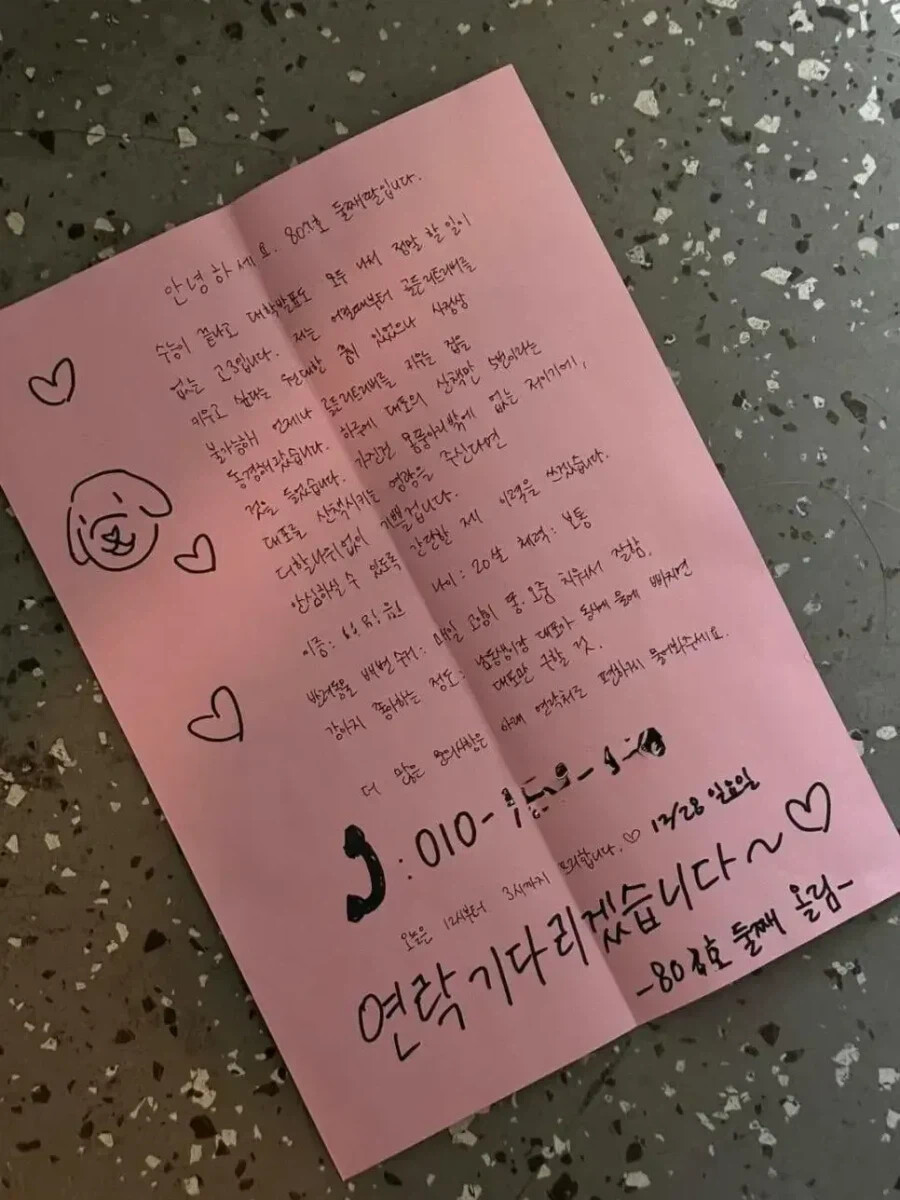 안녕하세요. 803호 둘째딸입니다.
수능이 끝나고 대학발표도 모두 나서 정말 할 일이
없는 고3입니다. 저는 어릴때부터 골든리트리버를
키우고 싶다는 원대한 꿈이 있었으나 사정상
불가능해 언제나 골든리트리버를 키우는 집을
동경해왔습니다. 하루에 대포의 산책만 5번이라는
것을 들었습니다. 가진건 몸뚱아리밖에 없는 저이기에,
대포를 산책시키는 영광을 주신다면
더할나위없이 기쁠겁니다.
안심하실 수 있도록 간략한 제 이력을 쓰겠습니다.
이름: 나이: 20살 체력: 보통
반려동물 배변 수거: 매일 고양이 똥.오줌 치워서 잘함.
강아지 좋아하는 정도: 남동생이랑 대포가 동시에 물에 빠지면
대포만 구할 것.
더 많은 문의사항은 아래 연락처로 편하게 물어봐주세요.
: 010-
오늘은 12시부터 3시까지 프리합니다.♡ 12/28 일요일
연락 기다리겠습니다~♡
둘째 올림-